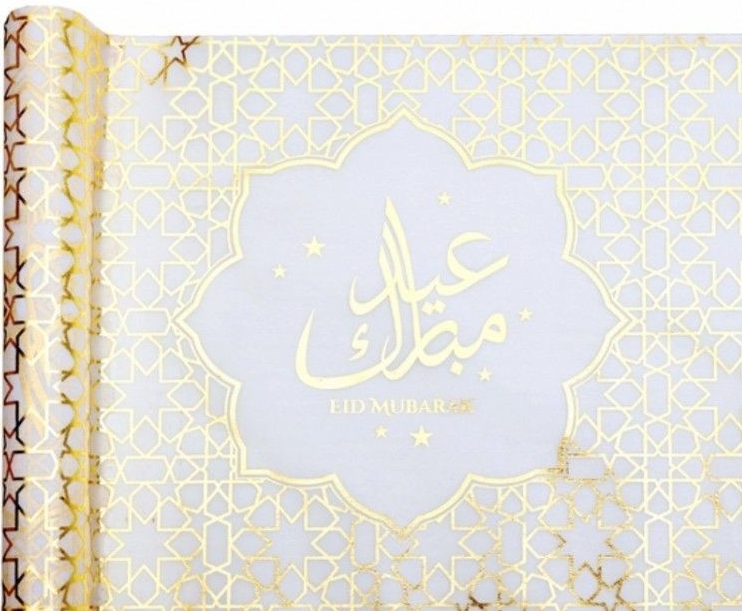 عيد
مبارك
EID MUBARAK